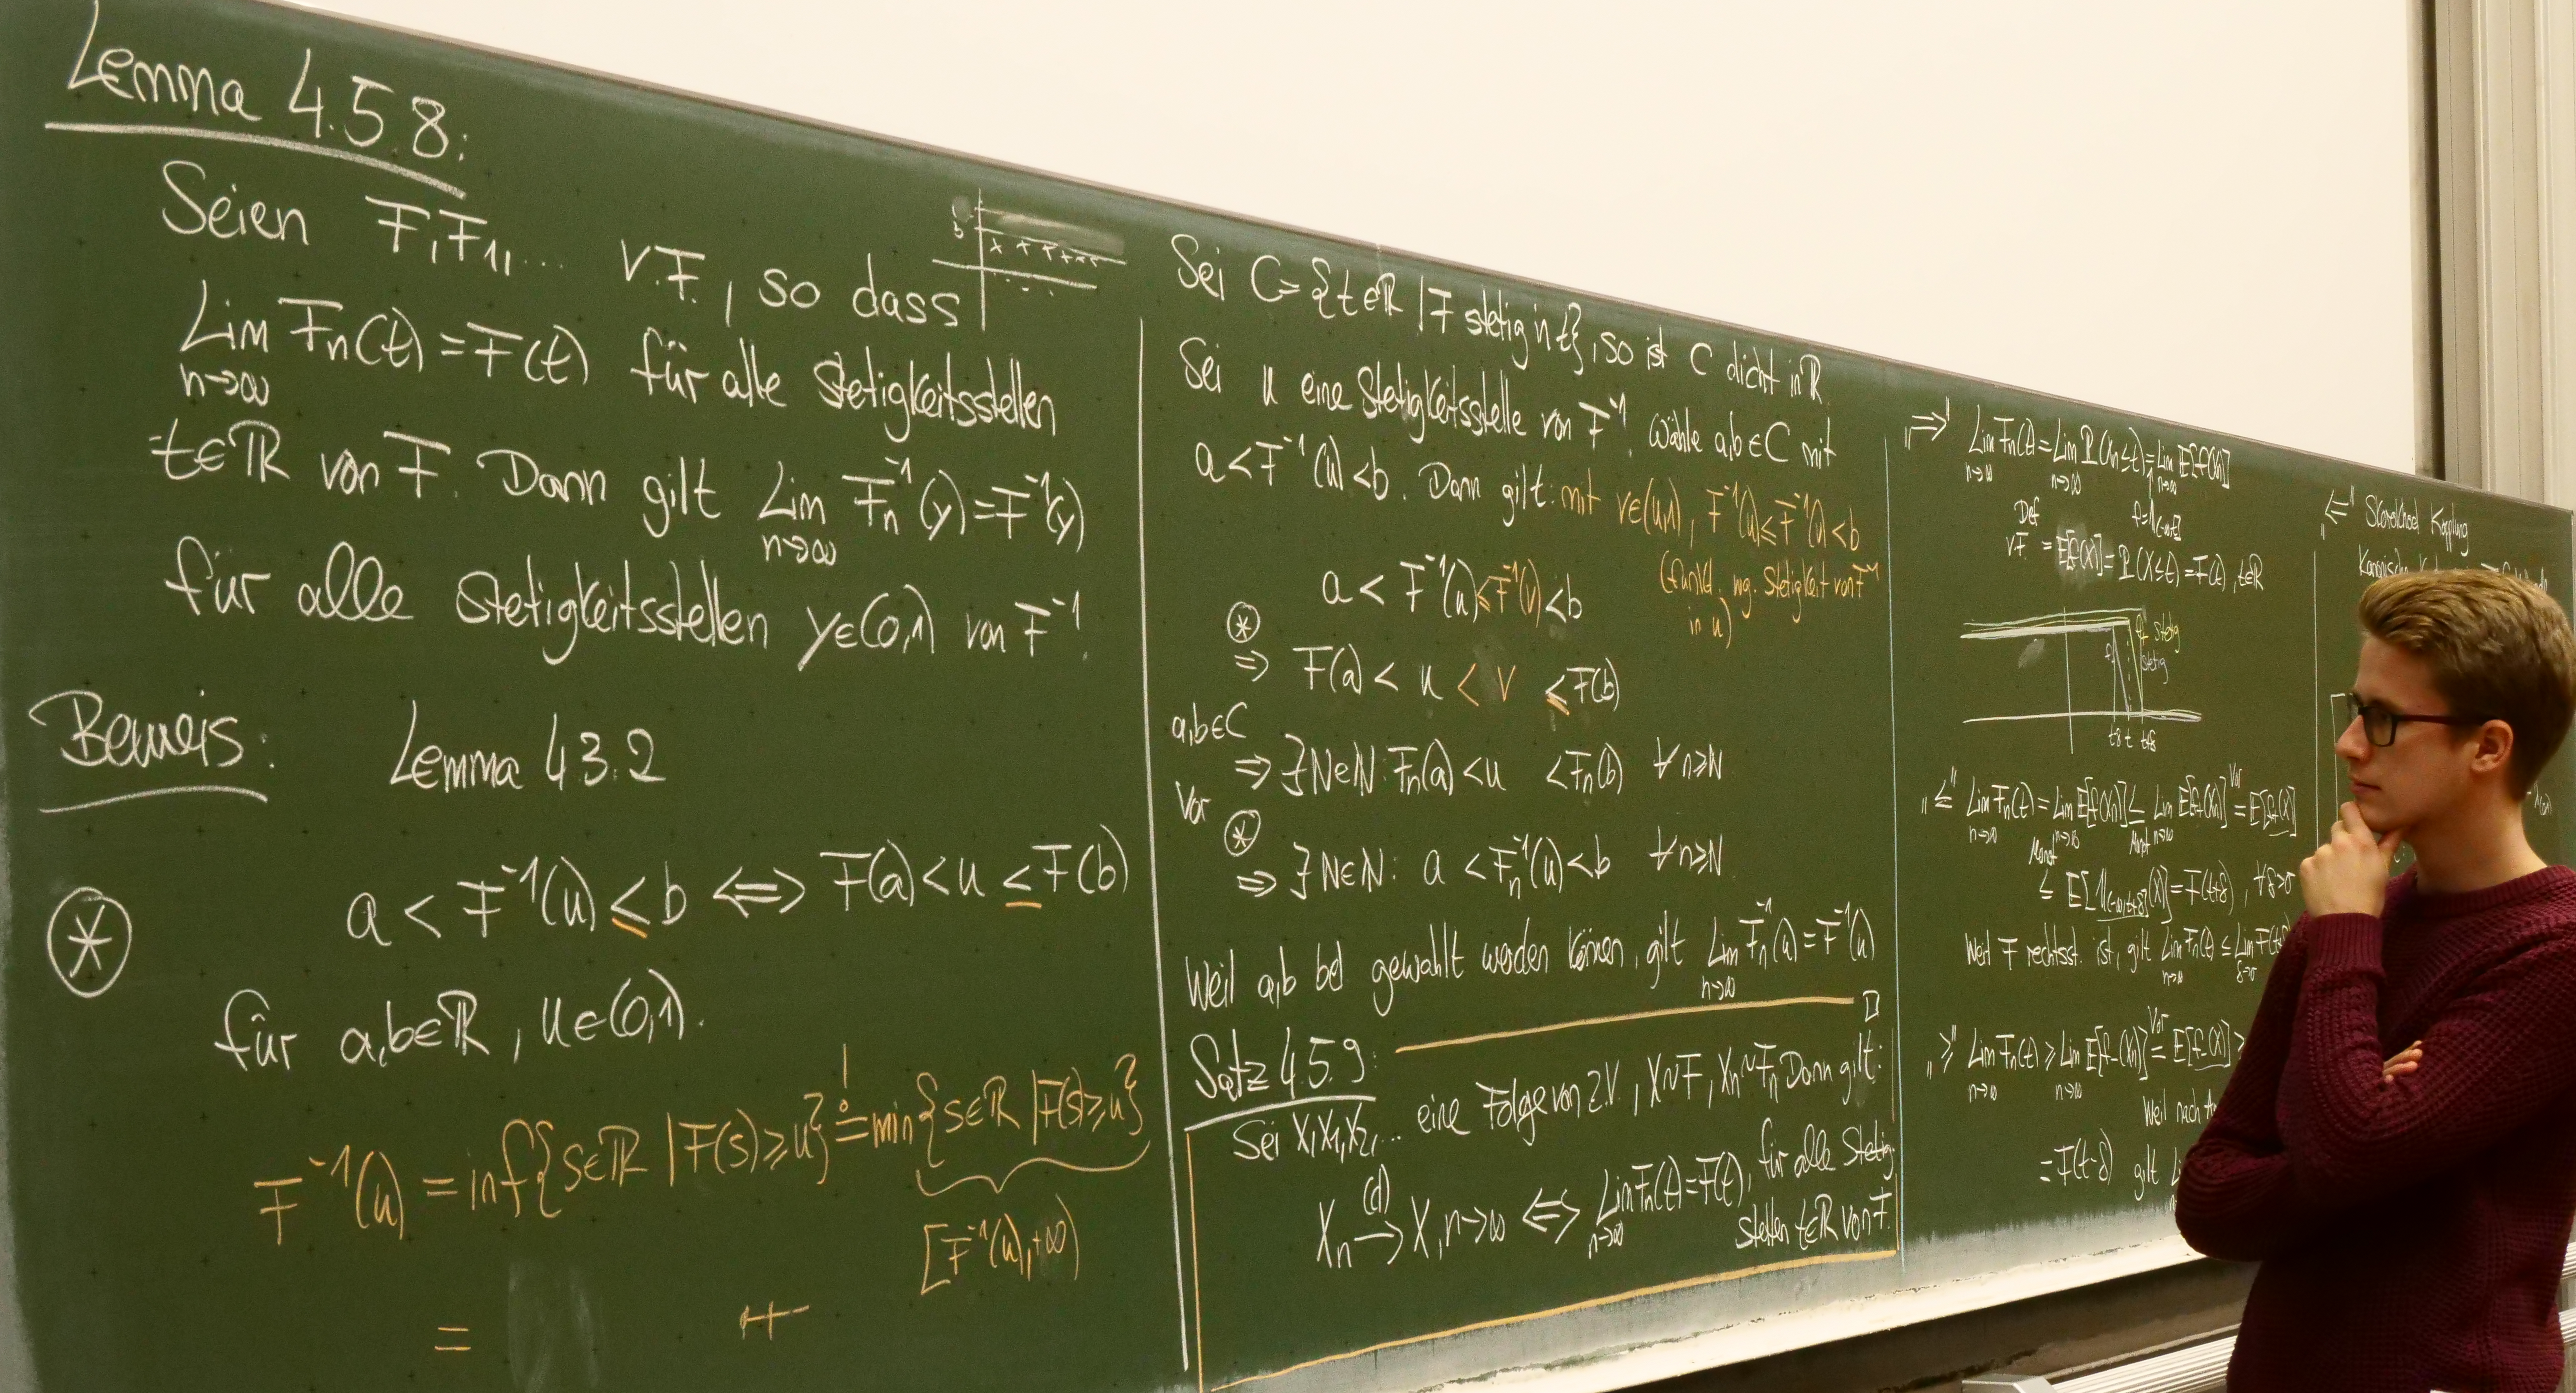 Lemma 4.5.8:
Seien F, F₁, ... v.F., so dass
Lim Fn(t) = F(t) für alle Stetigkeitsstellen
n→∞
t∈ℝ von F. Dann gilt Lim Fn⁻¹(y) = F⁻¹(y)
n→∞
für alle Stetigkeitsstellen y∈(0,1) von F⁻¹.
Beweis: Lemma 4.3.2
⊛ a < F⁻¹(u) ≤ b ⟺ F(a) < u ≤ F(b)
für a,b∈ℝ, u∈(0,1).
F⁻¹(u) = inf{s∈ℝ | F(s) ≥ u} != min{s∈ℝ | F(s) ≥ u}
[F⁻¹(u), +∞)
=
Sei C = {t∈ℝ | F stetig in t}, so ist C dicht in ℝ
Sei u eine Stetigkeitsstelle von F⁻¹. Wähle a,b∈C mit
a < F⁻¹(u) < b. Dann gilt: mit v∈(u,1), F⁻¹(u) ≤ F⁻¹(v) < b
in u)
a < F⁻¹(u) ≤ F⁻¹(v) < b
⊛
⇒ F(a) < u < v ≤ F(b)
a,b∈C
⇒ ∃N∈ℕ: Fn(a) < u < Fn(b) ∀n≥N
Vor
⊛
⇒ ∃N∈ℕ: a < Fn⁻¹(u) < b ∀n≥N
Weil a,b bel gewählt werden können, gilt Lim Fn⁻¹(u) = F⁻¹(u)
n→∞
□
Satz 4.5.9:
Sei X, X₁, X₂, ... eine Folge von Z.V., X~F, Xn~Fn Dann gilt:
Xn →(d) X, n→∞ ⟺ Lim Fn(t) = F(t), für alle Stetig-
n→∞
stellen t∈ℝ von F.
„⇒" Lim Fn(t) = Lim ℙ(Xn≤t) = Lim E[f(Xn)]
n→∞ n→∞ n→∞
Def
vF = E[f(X)] = ℙ(X≤t) = F(t), t∈ℝ
f₊ stetig
stetig
t-δ t t+δ
„≤" Lim Fn(t) = Lim E[f(Xn)] ≤ Lim E[f₊(Xn)] = E[f₊(X)]
Vor
n→∞ n→∞ n→∞
Monot Monot
≤ E[𝟙(-∞,t+δ](X)] = F(t+δ), ∀δ>0
Weil F rechtsst. ist, gilt Lim Fn(t) ≤ Lim
n→∞ δ→0
„≥" Lim Fn(t) ≥ Lim E[f₋(Xn)] = E[f₋(X)] ≥
Vor
n→∞ n→∞
Weil nach
= F(t-δ) gilt
„⇐" Skorokhod Kopplung